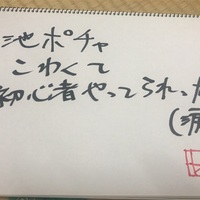 池ポチャ
こわくて
初心者やってられった